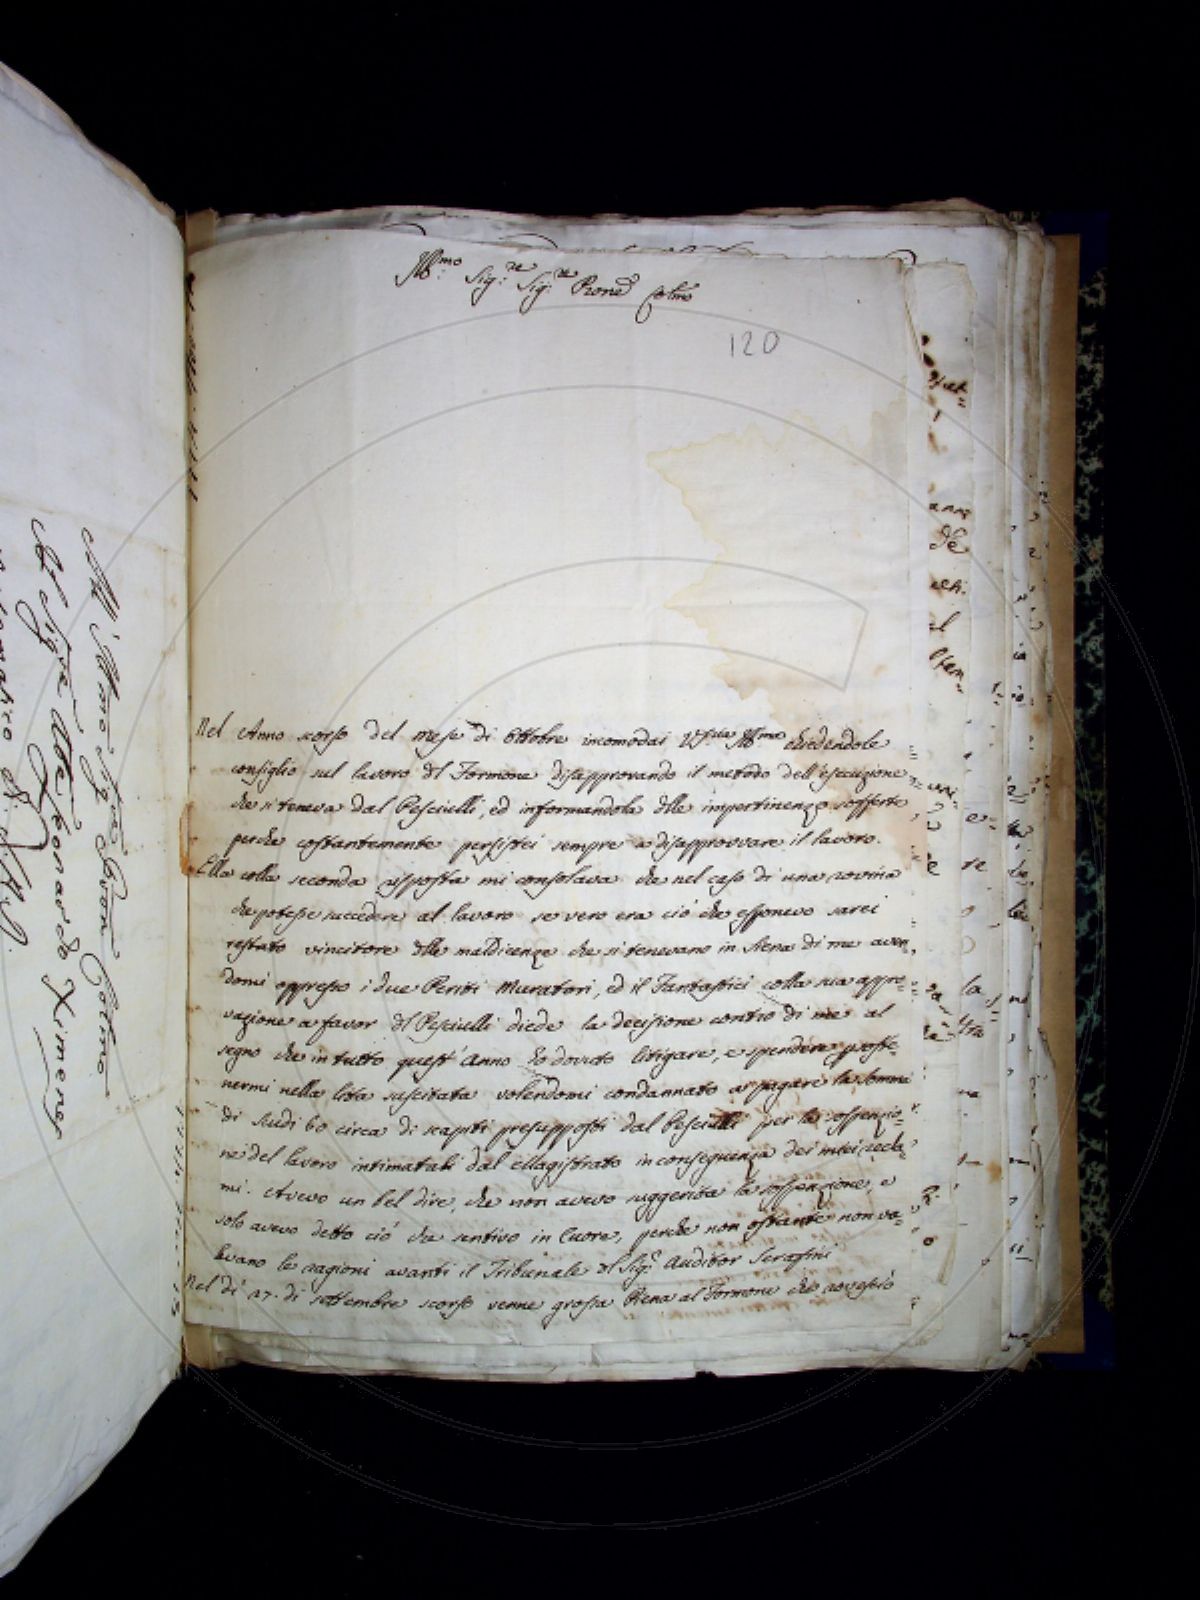 Ill:mo Sig:re Sig:re Prone Colmo
120
Nel Anno scorso del mese di Ottobre incomodai V.S.ria Ill:ma chiedendole
consiglio sul lavoro del Formone disapprovando il metodo dell'esecuzione
che si teneva dal Pesciulli, ed informandola delle impertinenze sofferte
perche costantemente persistei sempre a disapprovare il lavoro.
Ella colla seconda risposta mi consolava che nel caso di una rovina
che potesse succedere al lavoro se vero era ciò che esponevo sarei
restato vincitore delle maldicenze che si tenevano in Siena di me aven-
domi oppresso i due Periti Muratori, ed il Fantastici colla sua appro-
vazione a favor del Pesciulli diede la decisione contro di me al
segno che in tutto quest'Anno ho dovuto litigare, e spendere soste-
nermi nella lita suscitata volendomi condannato a pagare la somma
di scudi 60 circa di scapiti presupposti dal Pesciulli per la sospenzio-
ne del lavoro intimatali dal Magistrato in conseguenza dei miei recla-
mi. Avevo un bel dire, che non avevo suggerita la sospenzione, e
solo avevo detto ciò che sentivo in Cuore, perche non ostante non va-
levano le ragioni avanti il Tribunale del Sig:re Auditor Serafini
Nel dì 27. di settembre scorso venne grossa Piena al Formone che rovesciò
All'Illmo Sig.re Sig.re Pron Colmo
Al Sig.re Abe Leonardo Ximenes